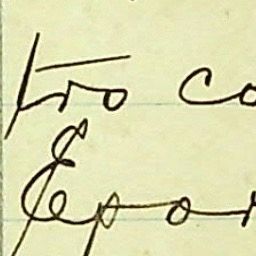 too co
Epor